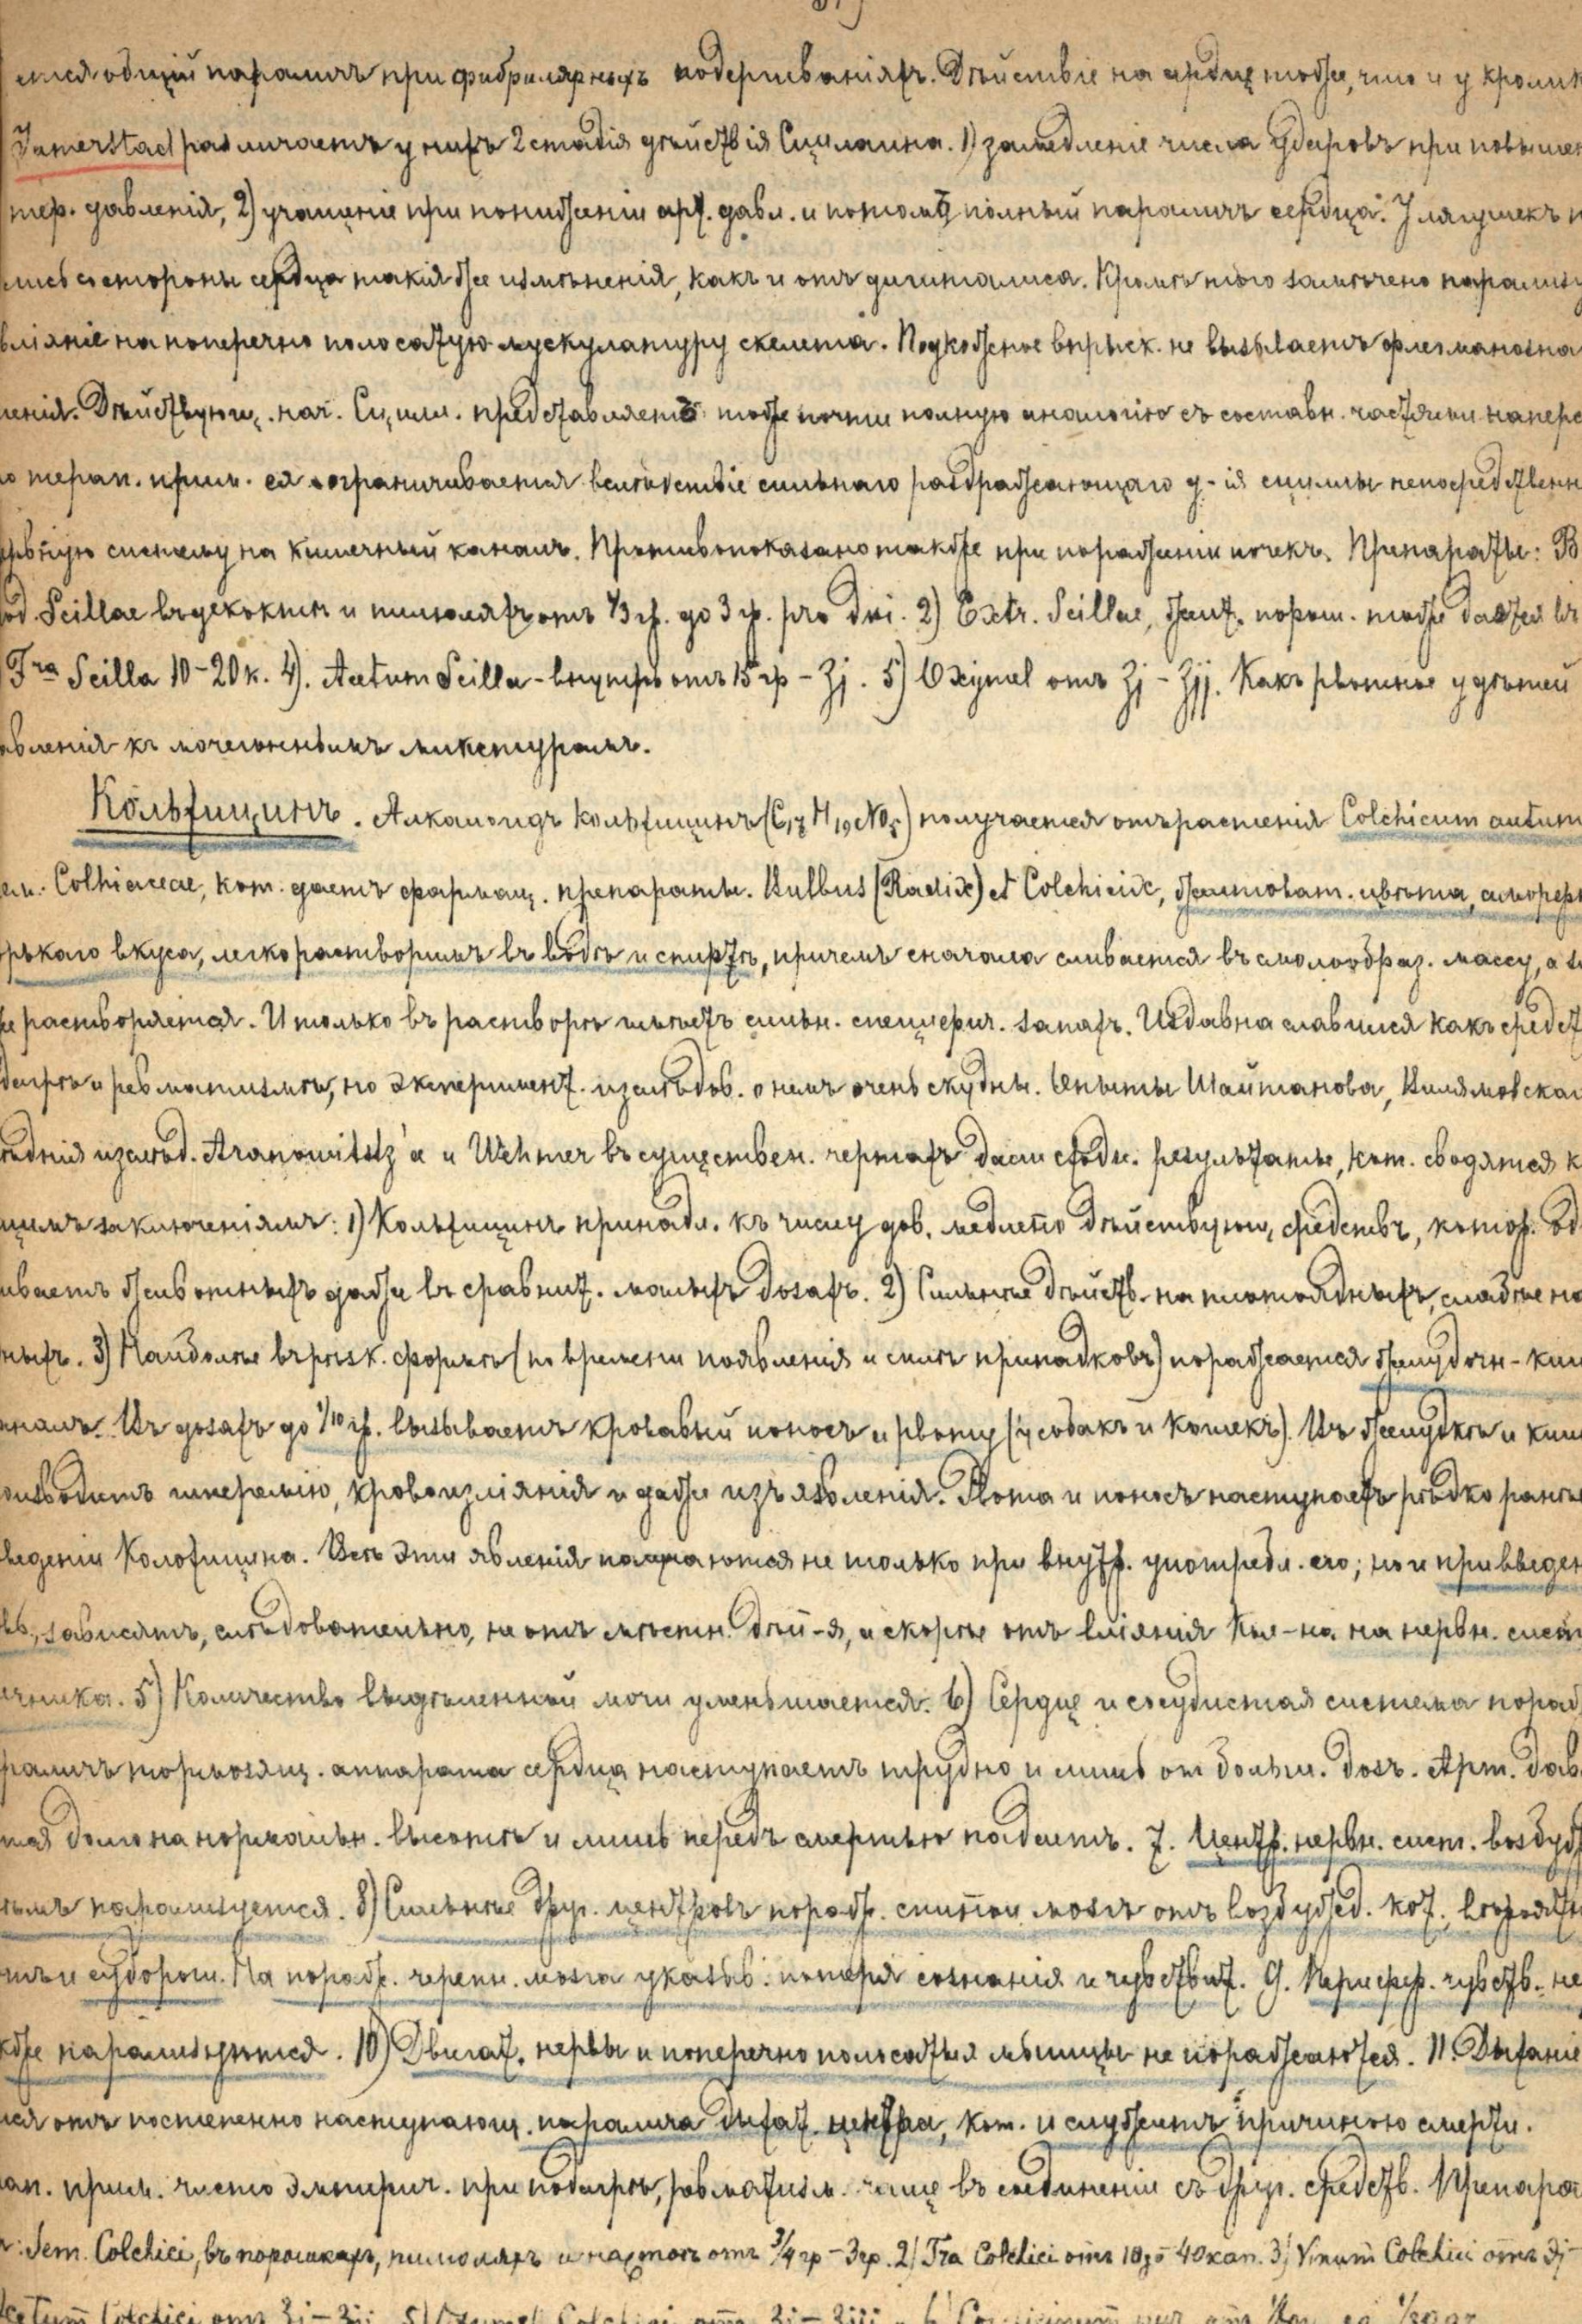 ется общій параличъ при фибрилярныхъ подергиваніяхъ. Дѣйствіе на сердце тоже, что и у кролик
Jamerstad различаетъ у нихъ 2 стадія дѣйствія Сциллаина. 1) замедленіе числа ударовъ при повышен
тер. давленія, 2) учащеніе при пониженіи арт. давл. и потомъ полный параличъ сердца. У лягушекъ н
лись со стороны сердца такія же измѣненія, какъ и отъ дигиталиса. Кромѣ того замѣчено парализу
вліяніе на поперечно полосатую мускулатуру скелета. Подкожное впрыск. не вызываетъ флегманозна
ленія. Дѣйствующ. нач. Сцилл. представляетъ тоже почти полную аналогію съ составн. частями напере
о терап. прим. ея ограничивается вслѣдствіе сильнаго раздражающаго д-ія сциллы непосредственн
рвную систему на кишечный каналъ. Противопоказано также при пораженіи почекъ. Препараты: B
od. Scillae въ декоктѣ и пилюляхъ отъ 1/3 гр. до 3 гр. pro doi. 2) Extr. Scillae, желт. порош. тоже дается въ
Tra Scilla 10-20 к. 4). Acetum Scilla - внутрь отъ 15 гр - ʒj. 5) Oxymel отъ ʒj - ʒjj. Какъ рвотное у дѣтей
авленія къ мочегоннымъ микстурамъ.
Кольхицинъ. Алкалоидъ кольхицинъ (C17 H19 NO5) получается отъ растенія Colchicum autum
ем. Colhiaceae, кот. даетъ фармац. препараты. Bulbus (Radix) et Colchicix, желтоват. цвѣта, аморфн
рькаго вкуса, легко растворимъ въ водѣ и спиртѣ, причемъ сначала сливается въ смолообраз. массу, а з
же растворяется. И только въ растворѣ имѣетъ сильн. специфич. запахъ. Издавна славился какъ средст
дагрѣ и ревматизмѣ, но эксперимент. изслѣдов. о немъ очень скудны. Опыты Шайтанова,
ѣднія изслѣд. Aronowitstz'а и Wehmer въ существен. чертахъ дали сходн. результаты, кот. сводятся к
щимъ заключеніямъ: 1) Кольхицинъ принадл. къ числу дов. медленно дѣйствующ. средствъ, котор.
иваетъ животныхъ даже въ сравнит. малыхъ дозахъ. 2) Сильнѣе дѣйств. на плотоядныхъ, слабѣе на
ныхъ. 3) Наиболѣе въ рѣзк. формѣ (по времени появленія и силѣ припадковъ) поражается желудочн-киш
каналъ. Въ дозахъ до 1/10 гр. вызываетъ кровавый поносъ и рвоту (у собакъ и кошекъ). Въ желудкѣ и киш
оизводитъ гиперемію, кровоизліянія и даже изъязвленія. Рвота и поносъ наступаетъ рѣдко ранѣе
введеніи Колхицина. Всѣ эти явленія получаются не только при внутр. употребл. его; но и при введен
вь, зависятъ, слѣдовательно, не отъ мѣстн. дѣй-я, а скорѣе отъ вліянія Кол-на на нервн. сист
ечника. 5) Количество выдѣленной мочи уменьшается. 6) Сердце и сосудистая система пораж
раличъ тормозящ. аппарата сердца наступаетъ трудно и лишь от больш. дозъ. Арт. дав
тся долго на нормальн. высотѣ и лишь передъ смертью падаетъ. 7. Центр. нервн. сист. возбуж
тѣмъ парализуется. 8) Сильнѣе друг. центровъ пораж. спинной мозгъ отъ возбужд. кот. вѣроятн
ятъ и судороги. На пораж. черепн. мозга указыв. потеря сознанія и чувствит. 9. Перифер. чувств. не
кже парализуются. 10) Двигат. нервы и поперечно полосатыя мышцы не поражаются. 11. Дыханіе
ся отъ постепенно наступающ. паралича дыхат. центра, кот. и служитъ причиною смерти.
ап. прим. чисто эмперич. при подагрѣ, ревматизм. чаще въ соединеніи съ друг. средств. Препара
: Sem. Colchici, въ порошкахъ, пилюляхъ и настоѣ отъ 3/4 гр - 3 гр. 2) Tra Colchici отъ 10 до 40 кап. 3) Vinum Colchici отъ ʒj -
cetum Colchici отъ ʒj - ʒjj Oxymel Colchici отъ ʒj - ʒjjj